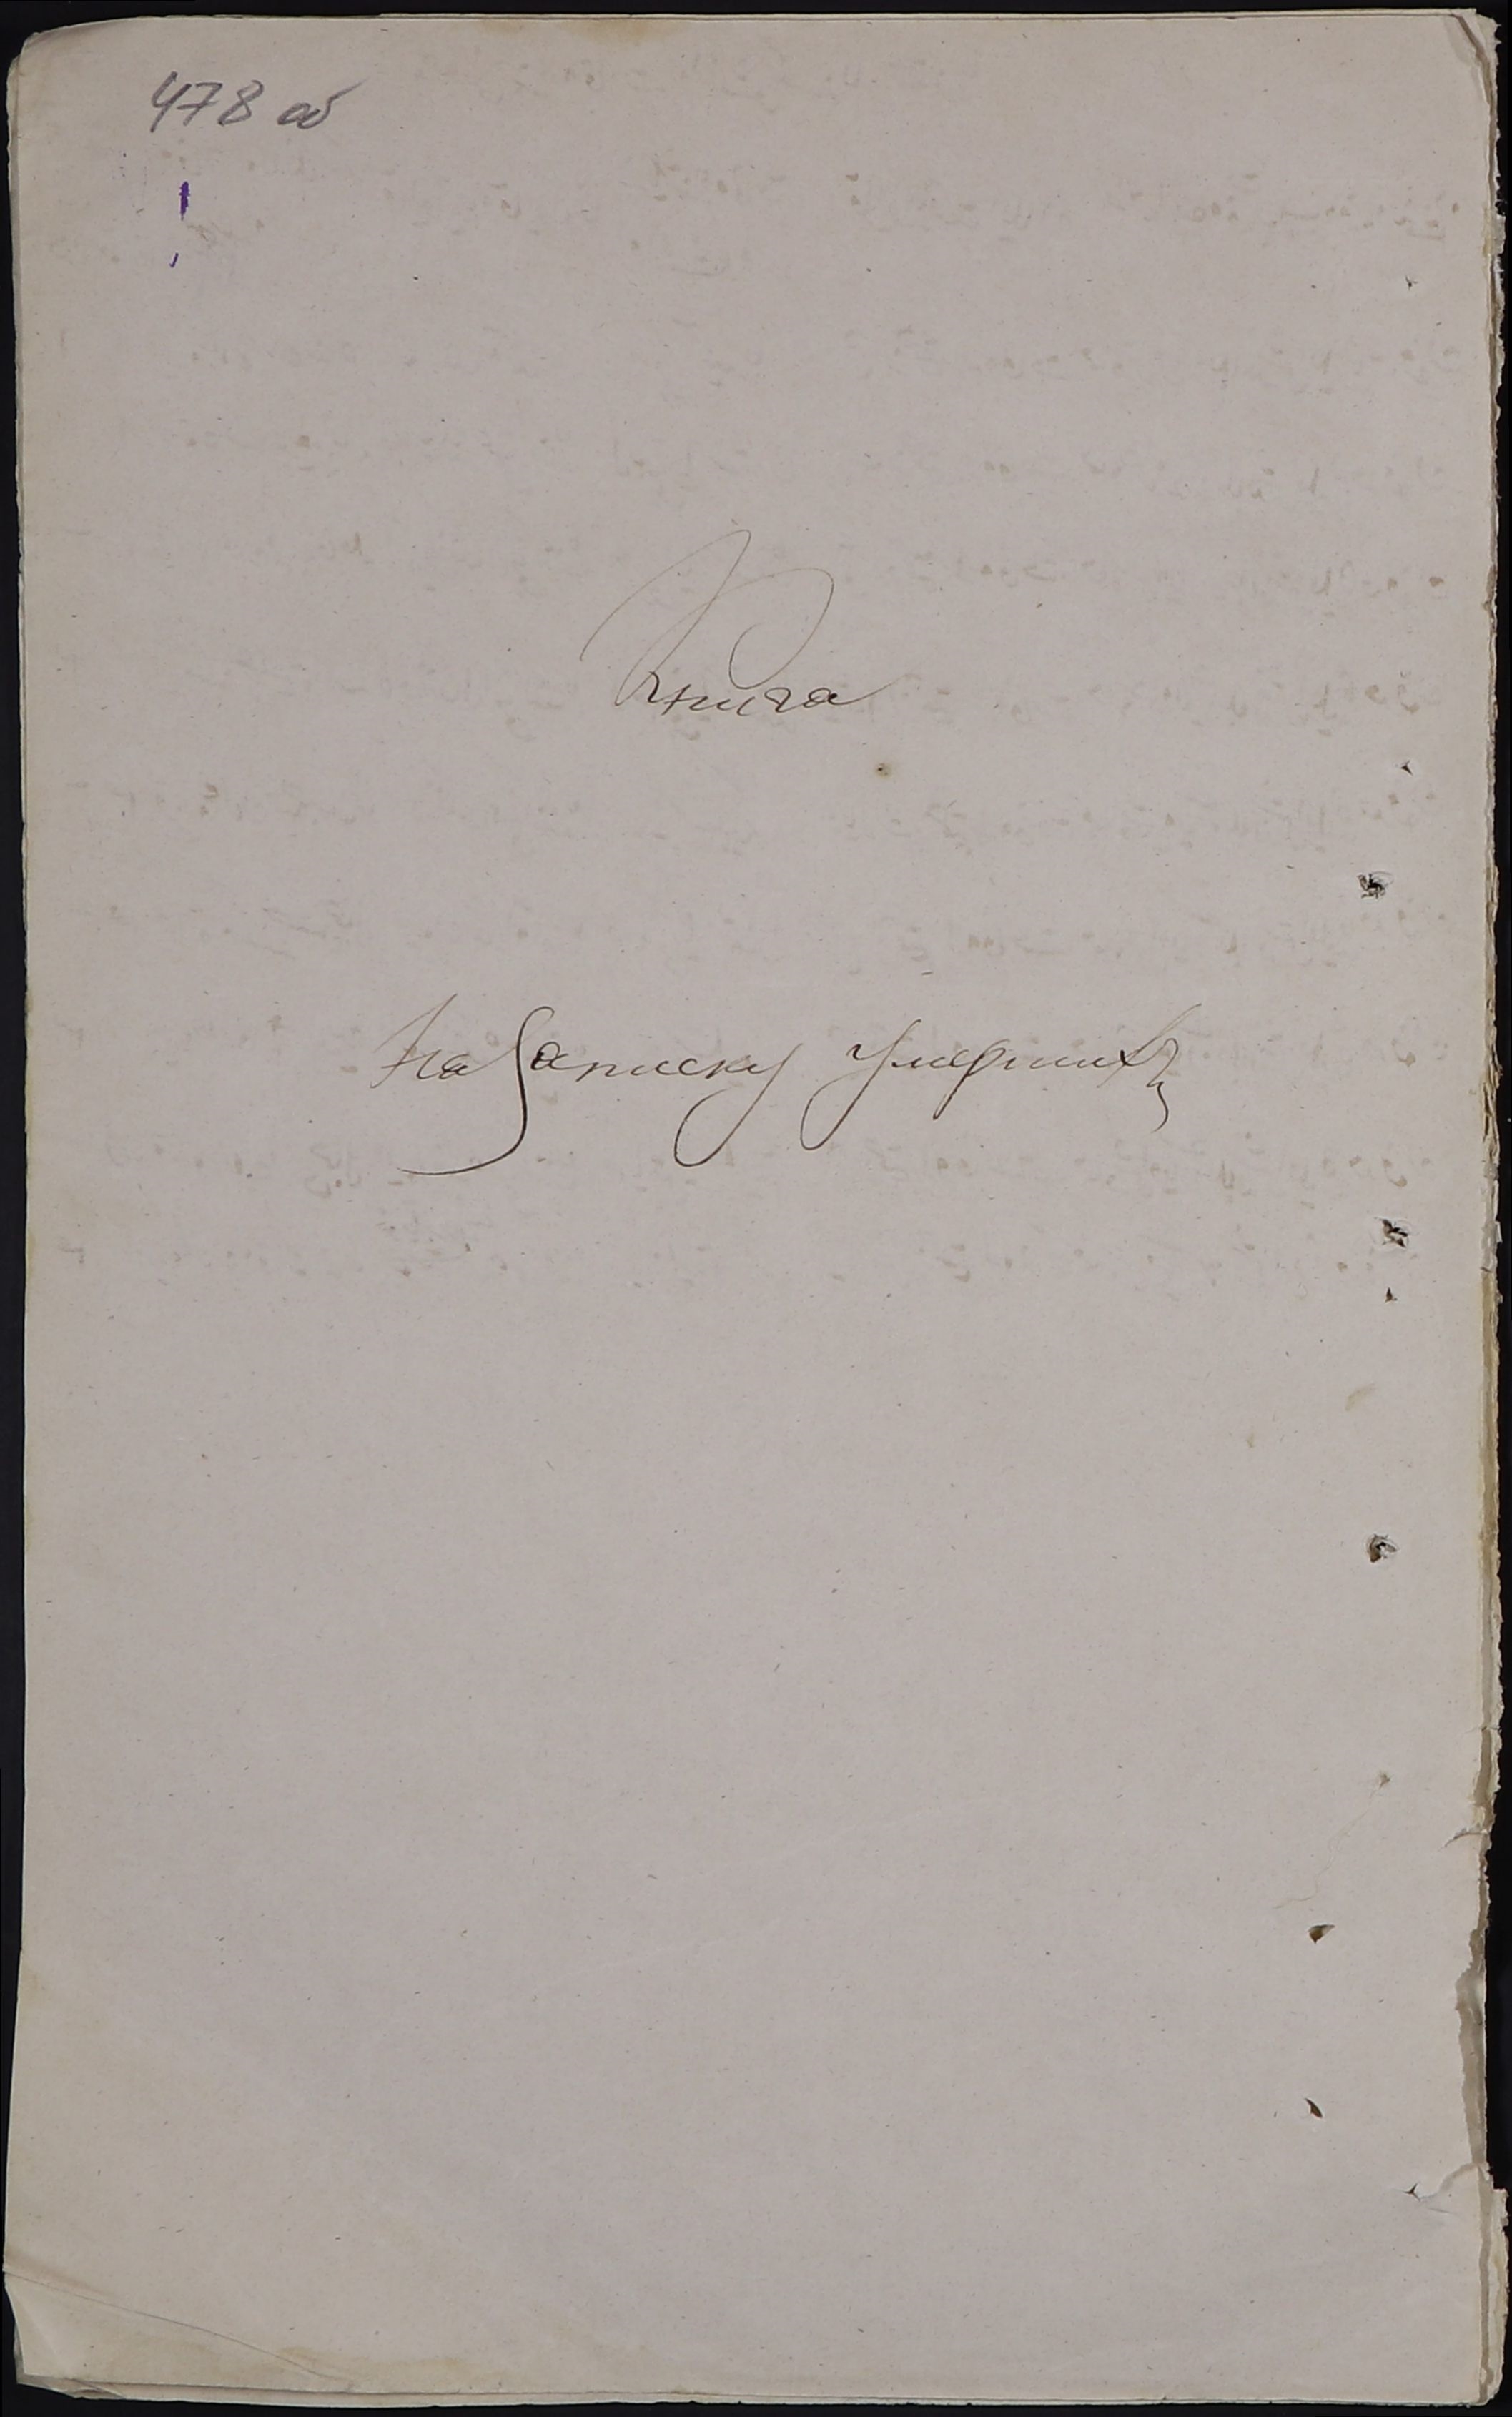 478 об
Книга
На Записку Умершихъ